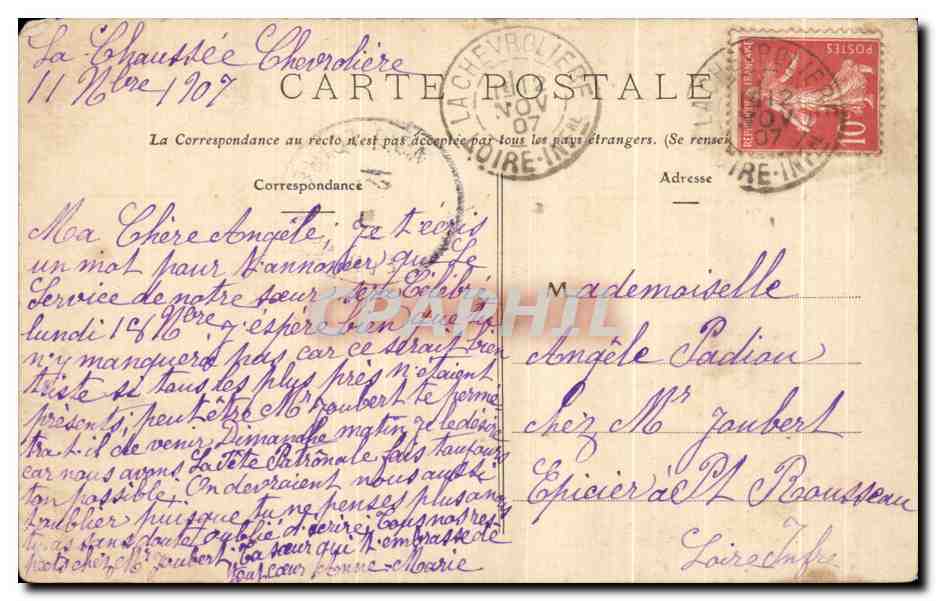 La Chaussée Chevrolière
11 Nbre 1907
CARTE POSTALE
La Correspondance au recto n'est pas acceptée par tous les pays étrangers. (Se rensei
LA CHEVROLIERE
NOV
07
LOIRE-INFRE
LA CHEVROLIERE
12
NOV
07
LOIRE-INFRE
REPUBLIQUE FRANÇAISE
POSTES
10
Correspondance
Adresse
Ma Chère Angèle, Je t'écris
un mot pour t'annoncer que Le
Service de notre sœur sera Célébré
lundi 18 Nbre j'éspère bien que tu
n'y manquera pas car ce serait bien
triste si tous les plus près n'étaient
présents, peut être Mr Joubert te perme
tra t il de venir Dimanche matin je le désire
car nous avons La Fête Patronale fais toujours
ton possible. On devraient nous aussi
t'oublier puisque tu ne penses plus a n
sans doute oublié d'écrire, Tous nos res
chez Mr Joubert. Ta sœur qui t'embrasse de
tout cœur Anne-Marie
Mademoiselle
Angèle Padiou
chez Mr Joubert
Epicier à Pt Rousseau
Loire Infre
CPAPHIL